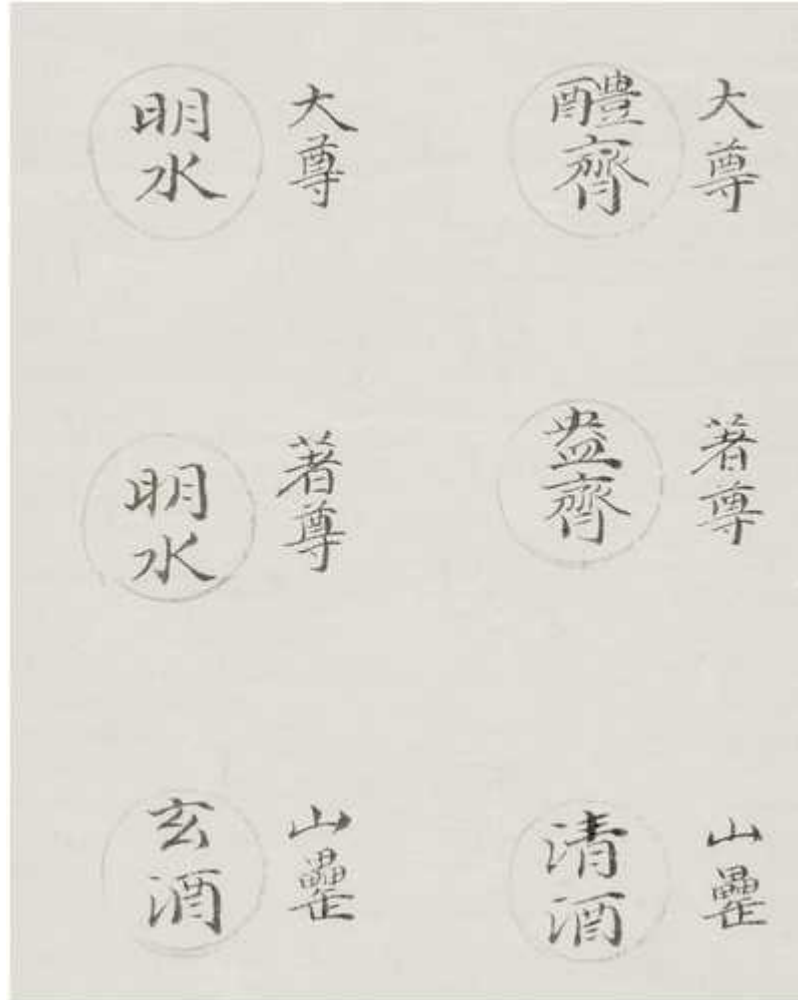 大尊
醴齊
大尊
明水
著尊
盎齊
著尊
明水
山罍
清酒
山罍
玄酒